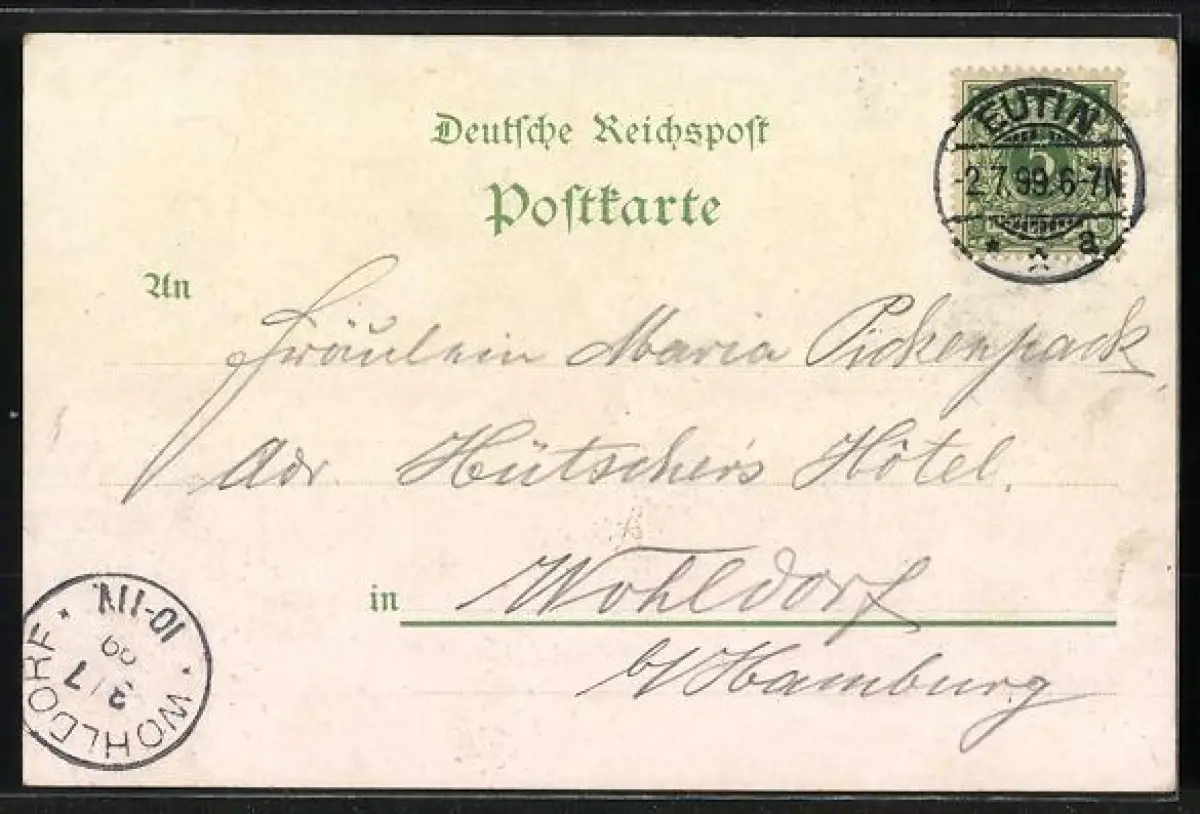 Deutsche Reichspost
Postkarte
EUTIN
5
-2.7.99.6-7N
* * a
An
Fräulein Maria Pickenpack
Adr. Hütscher's Hôtel.
in Wohldorf
b/Hamburg
WOHLDORF
7
99
10-11V